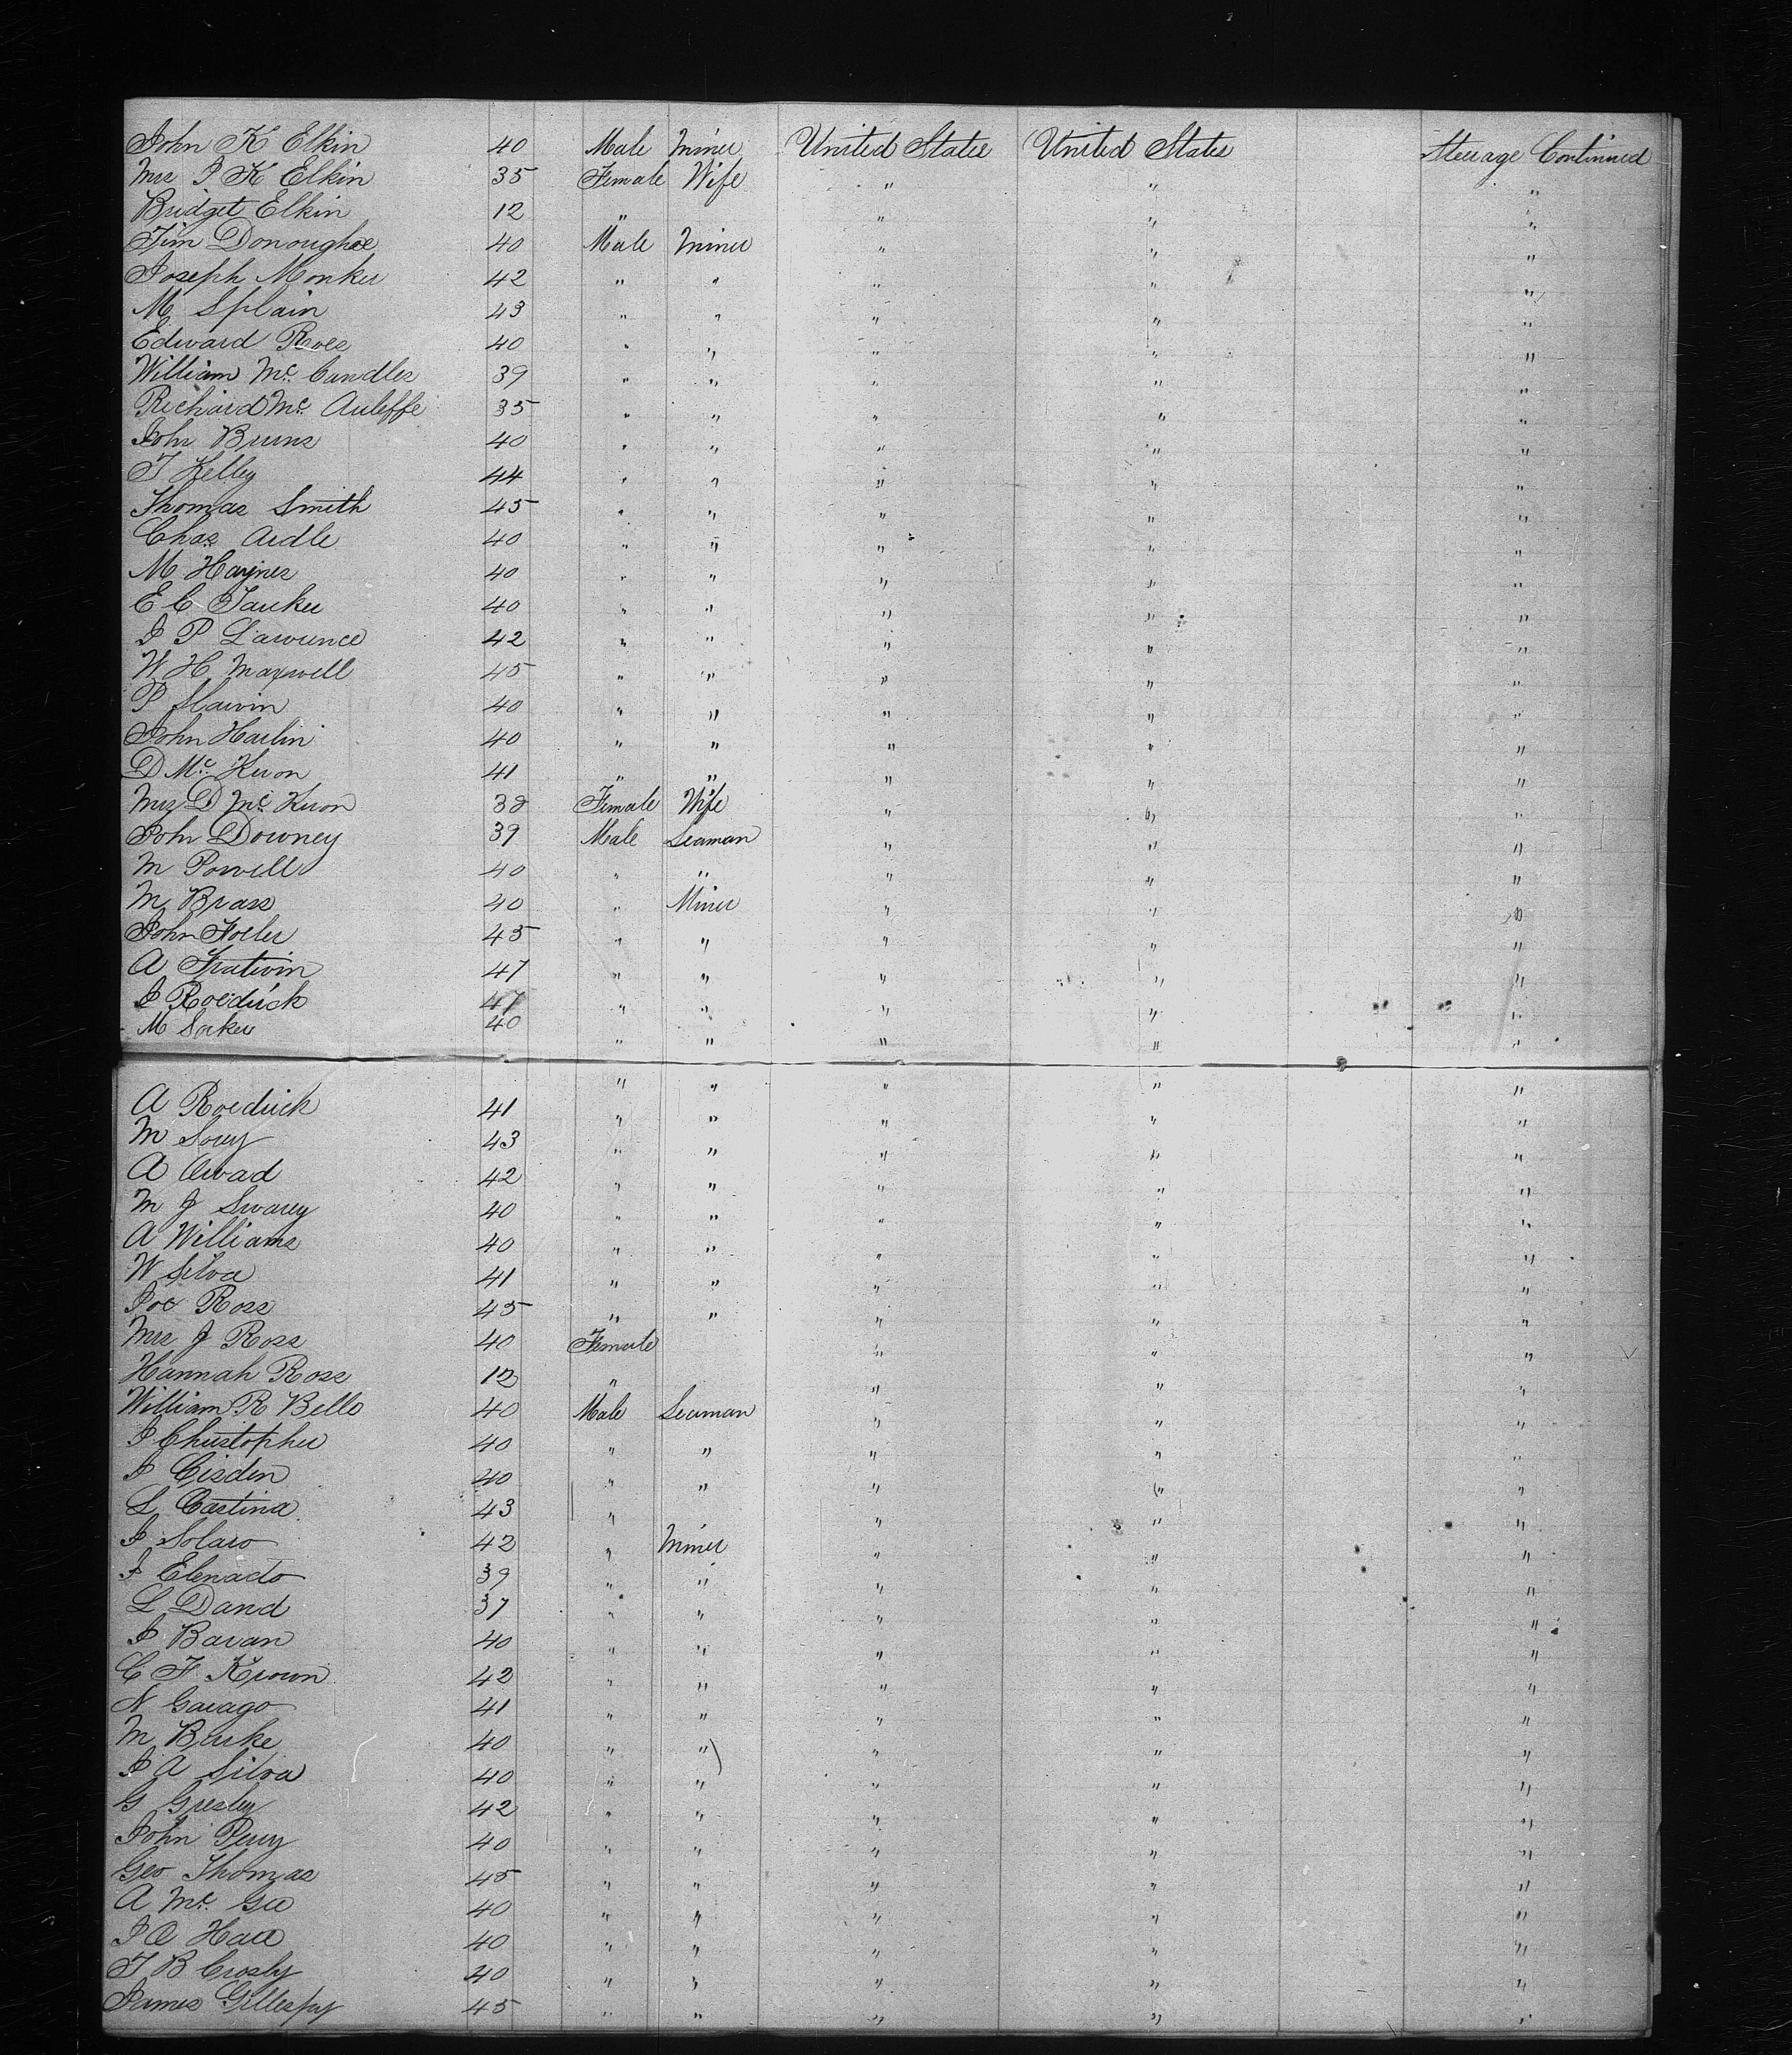 John K Elkin 40 Male Miner United States United States Steerage Continued
Mrs J K Elkin 35 Female Wife " " "
Bridget Elkin 12 " " " "
Tim Donoughoe 40 Male Miner " " "
Joseph Monker 42 " " " " "
M Splain 43 " " " " "
Edward Roes 40 " " " " "
William Mc Candles 39 " " " " "
Richard Mc Auleffe 35 " " " " "
John Burns 40 " " " " "
T Kelley 44 " " " " "
Thomas Smith 45 " " " " "
Chas Ardle 40 " " " " "
M Haynes 40 " " " " "
E C Tarker 40 " " " " "
J P Lawrence 42 " " " " "
W H Maxwell 45 " " " " "
P Slavin 40 " " " " "
John Harlin 40 " " " " "
D Mc Keron 41 " " " " "
Mrs D Mc Keron 38 Female Wife " " "
John Downey 39 Male Seaman " " "
M Powell 40 " " " " "
M Brass 40 " Miner " " "
John Foller 45 " " " " "
A 47 " " " " "
J Roedrick 47 " " " " "
M Sorker 40 " " " " "
" " " " "
A Roedrick 41 " " " " "
M Sorey 43 " " " " "
A Avrad 42 " " " " "
M J Swarey 40 " " " " "
A Williams 40 " " " " "
W Silva 41 " " " " "
Joe Ross 45 " " " " "
Mrs J Ross 40 Female " " "
Hannah Ross 12 " " " "
William R Bello 40 Male Seaman " " "
J Christopher 40 " " " " "
J Cisden 40 " " " " "
L Castina 43 " " " " "
J Solaro 42 " Miner " " "
J Elenado 39 " " " " "
L Dand 37 " " " " "
J Bavan 40 " " " " "
C F Krown 42 " " " " "
N Garago 41 " " " " "
M Burke 40 " " " " "
J A Silva 40 " " " " "
G Gresley 42 " " " " "
John Perry 40 " " " " "
Geo Thomas 45 " " " " "
A Mc Gee 40 " " " " "
J A Hall 40 " " " " "
T B Crosby 40 " " " " "
James Gillespy 45 " " " " "